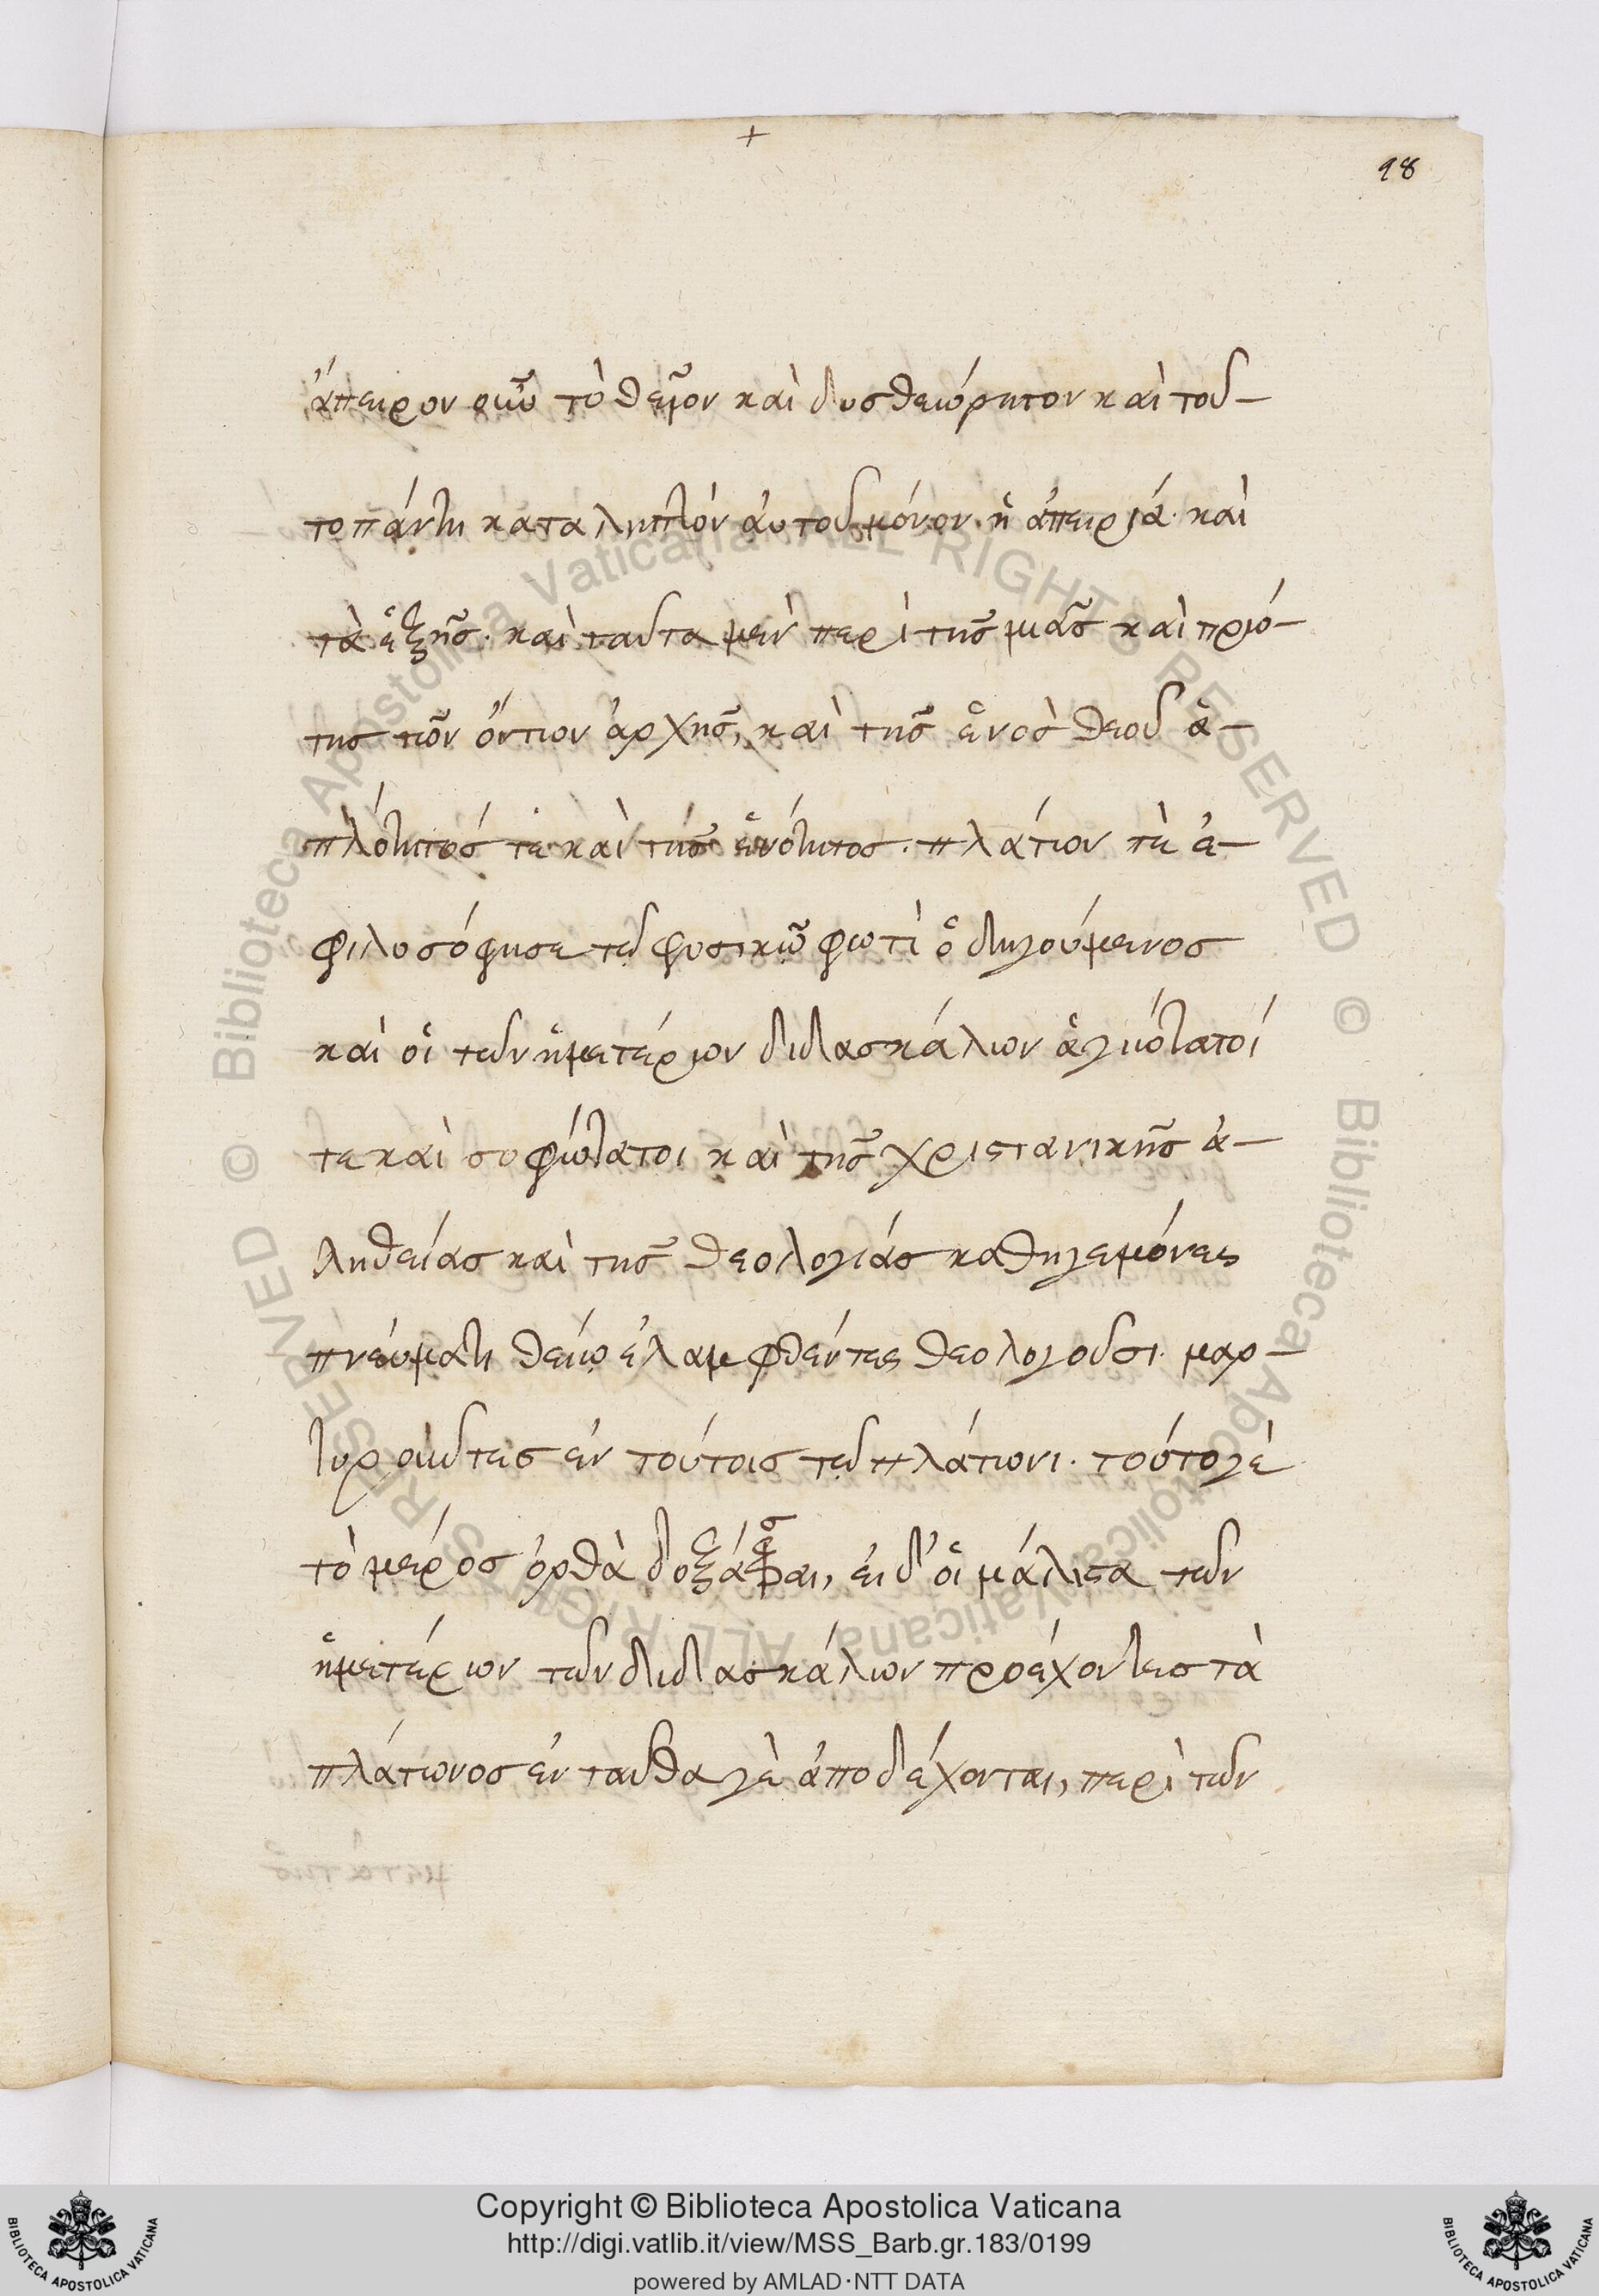 +
98
ἄπειρον οὖν τὸ θεῖον καὶ δυσθεώρητον καὶ τοῦ-
το πάντη καταληπτόν αὐτοῦ μόνον ἡ ἀπειρία· καὶ
τὰ ἑξῆς· καὶ ταῦτα μὲν περὶ τῆς μιᾶς καὶ πρώ-
της τῶν ὄντων ἀρχῆς, καὶ τῆς ἑνὸς θεοῦ ἁ-
πλότητός τε καὶ τῆς ἑνότητος· πλάτων τὲ ἐ-
φιλοσόφησε τῷ φυσικῷ φωτὶ ὁδηγούμενος
καὶ οἱ τῶν ἡμετέρων διδασκάλων ἁγιώτατοί
τε καὶ σοφώτατοι καὶ τῆς χριστανικῆς ἀ-
ληθείας καὶ τῆς θεολογίας καθηγεμόνες
πνεύματι θείῳ ἐλαμφθέντες θεολογοῦσι· μαρ-
τυροῦντες ἐν τούτοις τῷ πλάτωνι· τοῦτό γε
τὸ μέρος ὀρθὰ δοξάσαι, εἰ δ' οἱ μάλιστα τῶν
ἡμετέρων τῶν διδασκάλων προέχοντες τὰ
πλάτωνος ἐνταῦθα γὲ ἀποδέχονται, περὶ τῶν
Copyright © Biblioteca Apostolica Vaticana
http://digi.vatlib.it/view/MSS_Barb.gr.183/0199
powered by AMLAD·NTT DATA